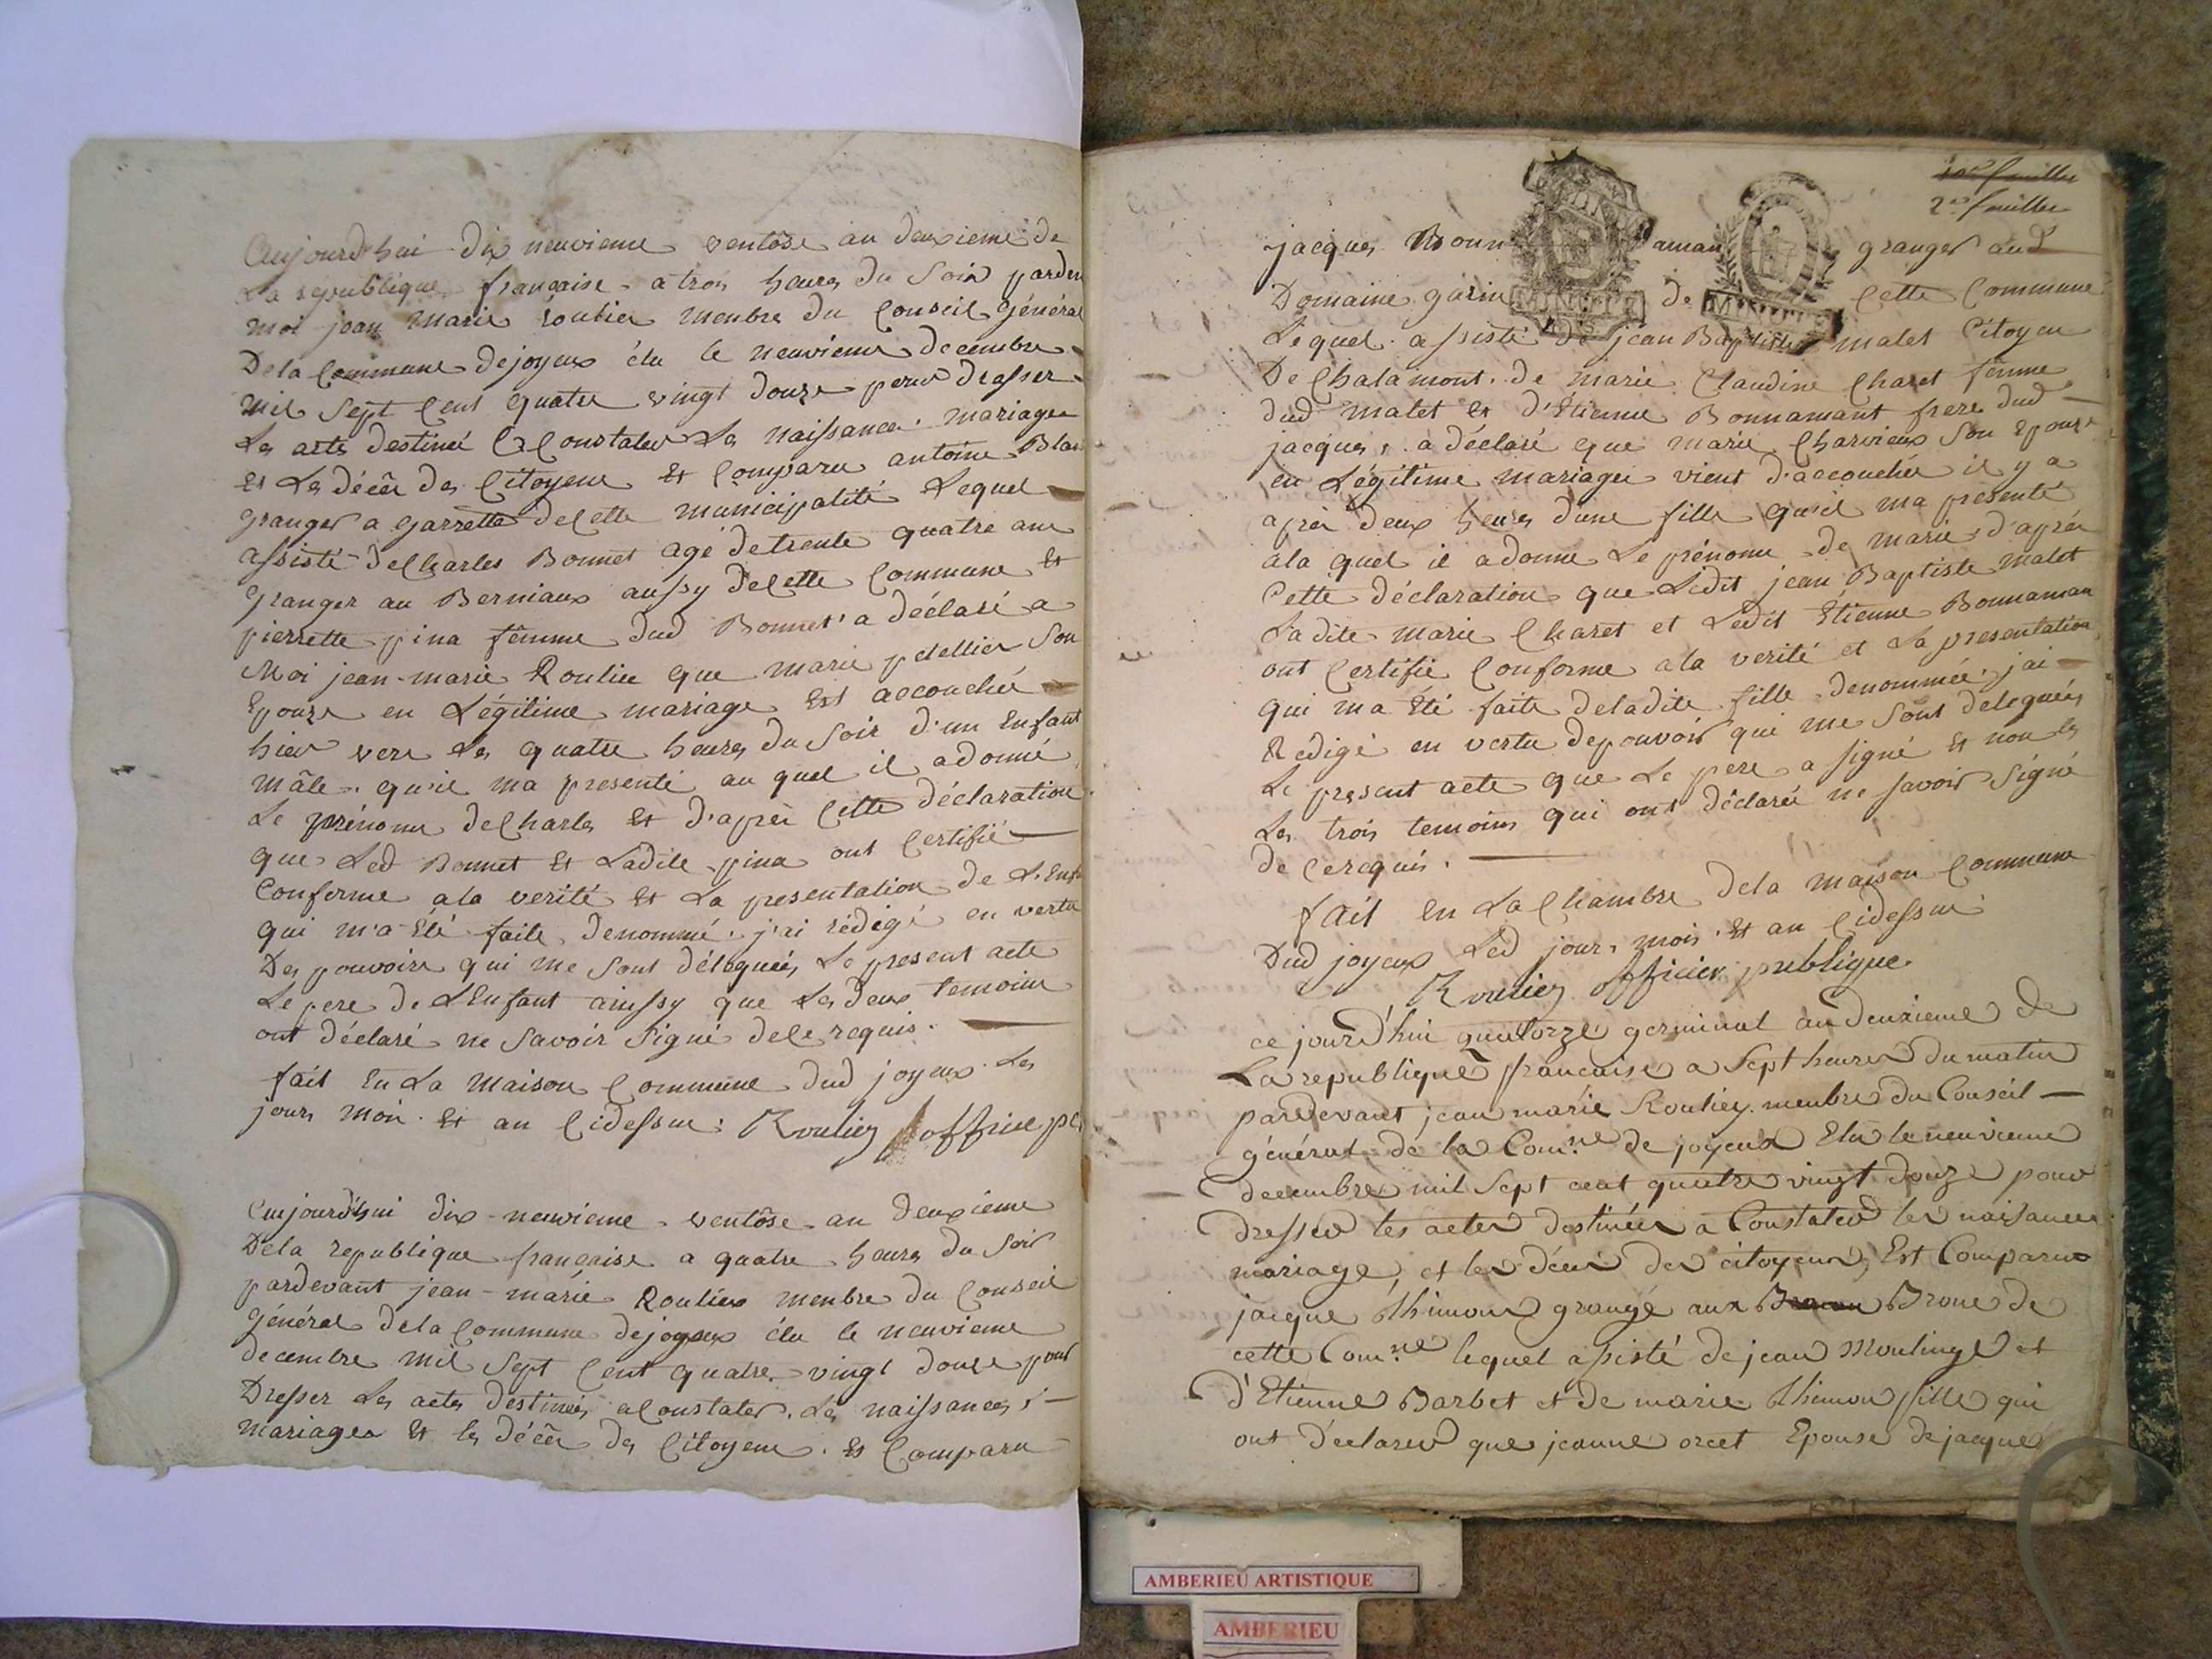 Aujourd'hui dix neuvieme ventôse an deuxieme de
La republique française a trois heures du Soir parde
moi jean Marie roulier menbre du Conseil général
De la Commune de joyeux élu le neuvieme decembre
mil Sept Cent quatre vingt douze pour drasser
Les acts destiné a Constater La naissance mariage
et Les décès des Citoyens Est Comparu antoine Blan
granger a garrette de Cette municipalité Lequel
assisté de Charles Bonnet agé de trente quatre ans
granger au Berniaux aussy de Cette Commune et
pierrette pina fémme dud Bonnet a déclaré a
Moi jean-marie Roulier que marie pelellier Son
Epouze en Légitime mariage Est accouchée
hier vers les quatre heures du Soir d'un Enfant
mâle qu'il ma presenté au quel il a donné
Le prénomm de Charles Et d'après Cette déclaration
que Led Bonnet Et Ladite pina ont Certifié
Conforme a la verité Et La presentation de L'Enf
qui m'a Eté faite denommé j'ai rédigé en vertu
Des pouvoirs qui me Sont délegués Le present acte
Le pere de L'Enfant ainssy que Les deux temoins
ont déclaré ne Savoir Signé de Ce requis.
fait En La Maison Commune dud joyeux Les
jours mois Et an Cidessus : Roulier officie
Aujourd'hui dix-neuvieme ventôse an deuxieme
De la republique française a quatre heures du Soir
pardevant jean-marie Roulier menbre du Conseil
Général de la Commune de joyeux élu le neuvieme
decembre mil Sept Cent quatre vingt douze pour
Dresser Les actes destinés a Constater Les naissances,
mariages Et les décès des Citoyens. Est Comparu
2me feuillet
jacques Bonn aman granger aud
Domaine garin de Cette Commune
Lequel assisté de jean Baptiste malet Citoyen
De Chalamont de marie Claudine Charet femme
dud malet et d'Etienne Bonnamant frere dud
jacques, a déclaré que marie Charvieux Son Epouze
en Légitime mariage vient d'accouchée il y a
après deux heures d'une fille qu'il ma presenté
a la quel il a donné Le prénomm de marie d'après
Cette déclaration que Ledit jean Baptiste malet
Ladite marie Charet et Ledit Etienne Bonnaman
ont Certifié Conforme a la verité et La presentation
qui ma Eté faite de ladite fille denommée j'ai
Rédigé en vertu de pouvoir qui me Sont delegués
Le present acte que Le pere a Signé Et non les
Les trois temoins qui ont déclaré ne Savoir Signé
de Ce requis.
fait En La Chambre de la maison Commune
Dud joyeux Led jour, mois Et an Cidessus
Roulier officier publique
ce jourd'hui quatorze germinal an deuxieme de
La republique française a Sept heures du matin
pardevant jean marie Roulier menbre du Conseil
général de la Comne de joyeux Elu le neuvieme
decembre mil Sept cent quatre vingt douze pour
dresser les actes destinées a Constater les naissances
mariage, et les déces des citoyens, Est Comparu
jacque thimon grangé aux Broue de
cette Comne lequel assisté de jean Moulinge et
d'Etienne Barbet et de marie thimon fille qui
ont déclarer que jeanne orcet Epouse de jacque
AMBERIEU ARTISTIQUE
AMBERIEU